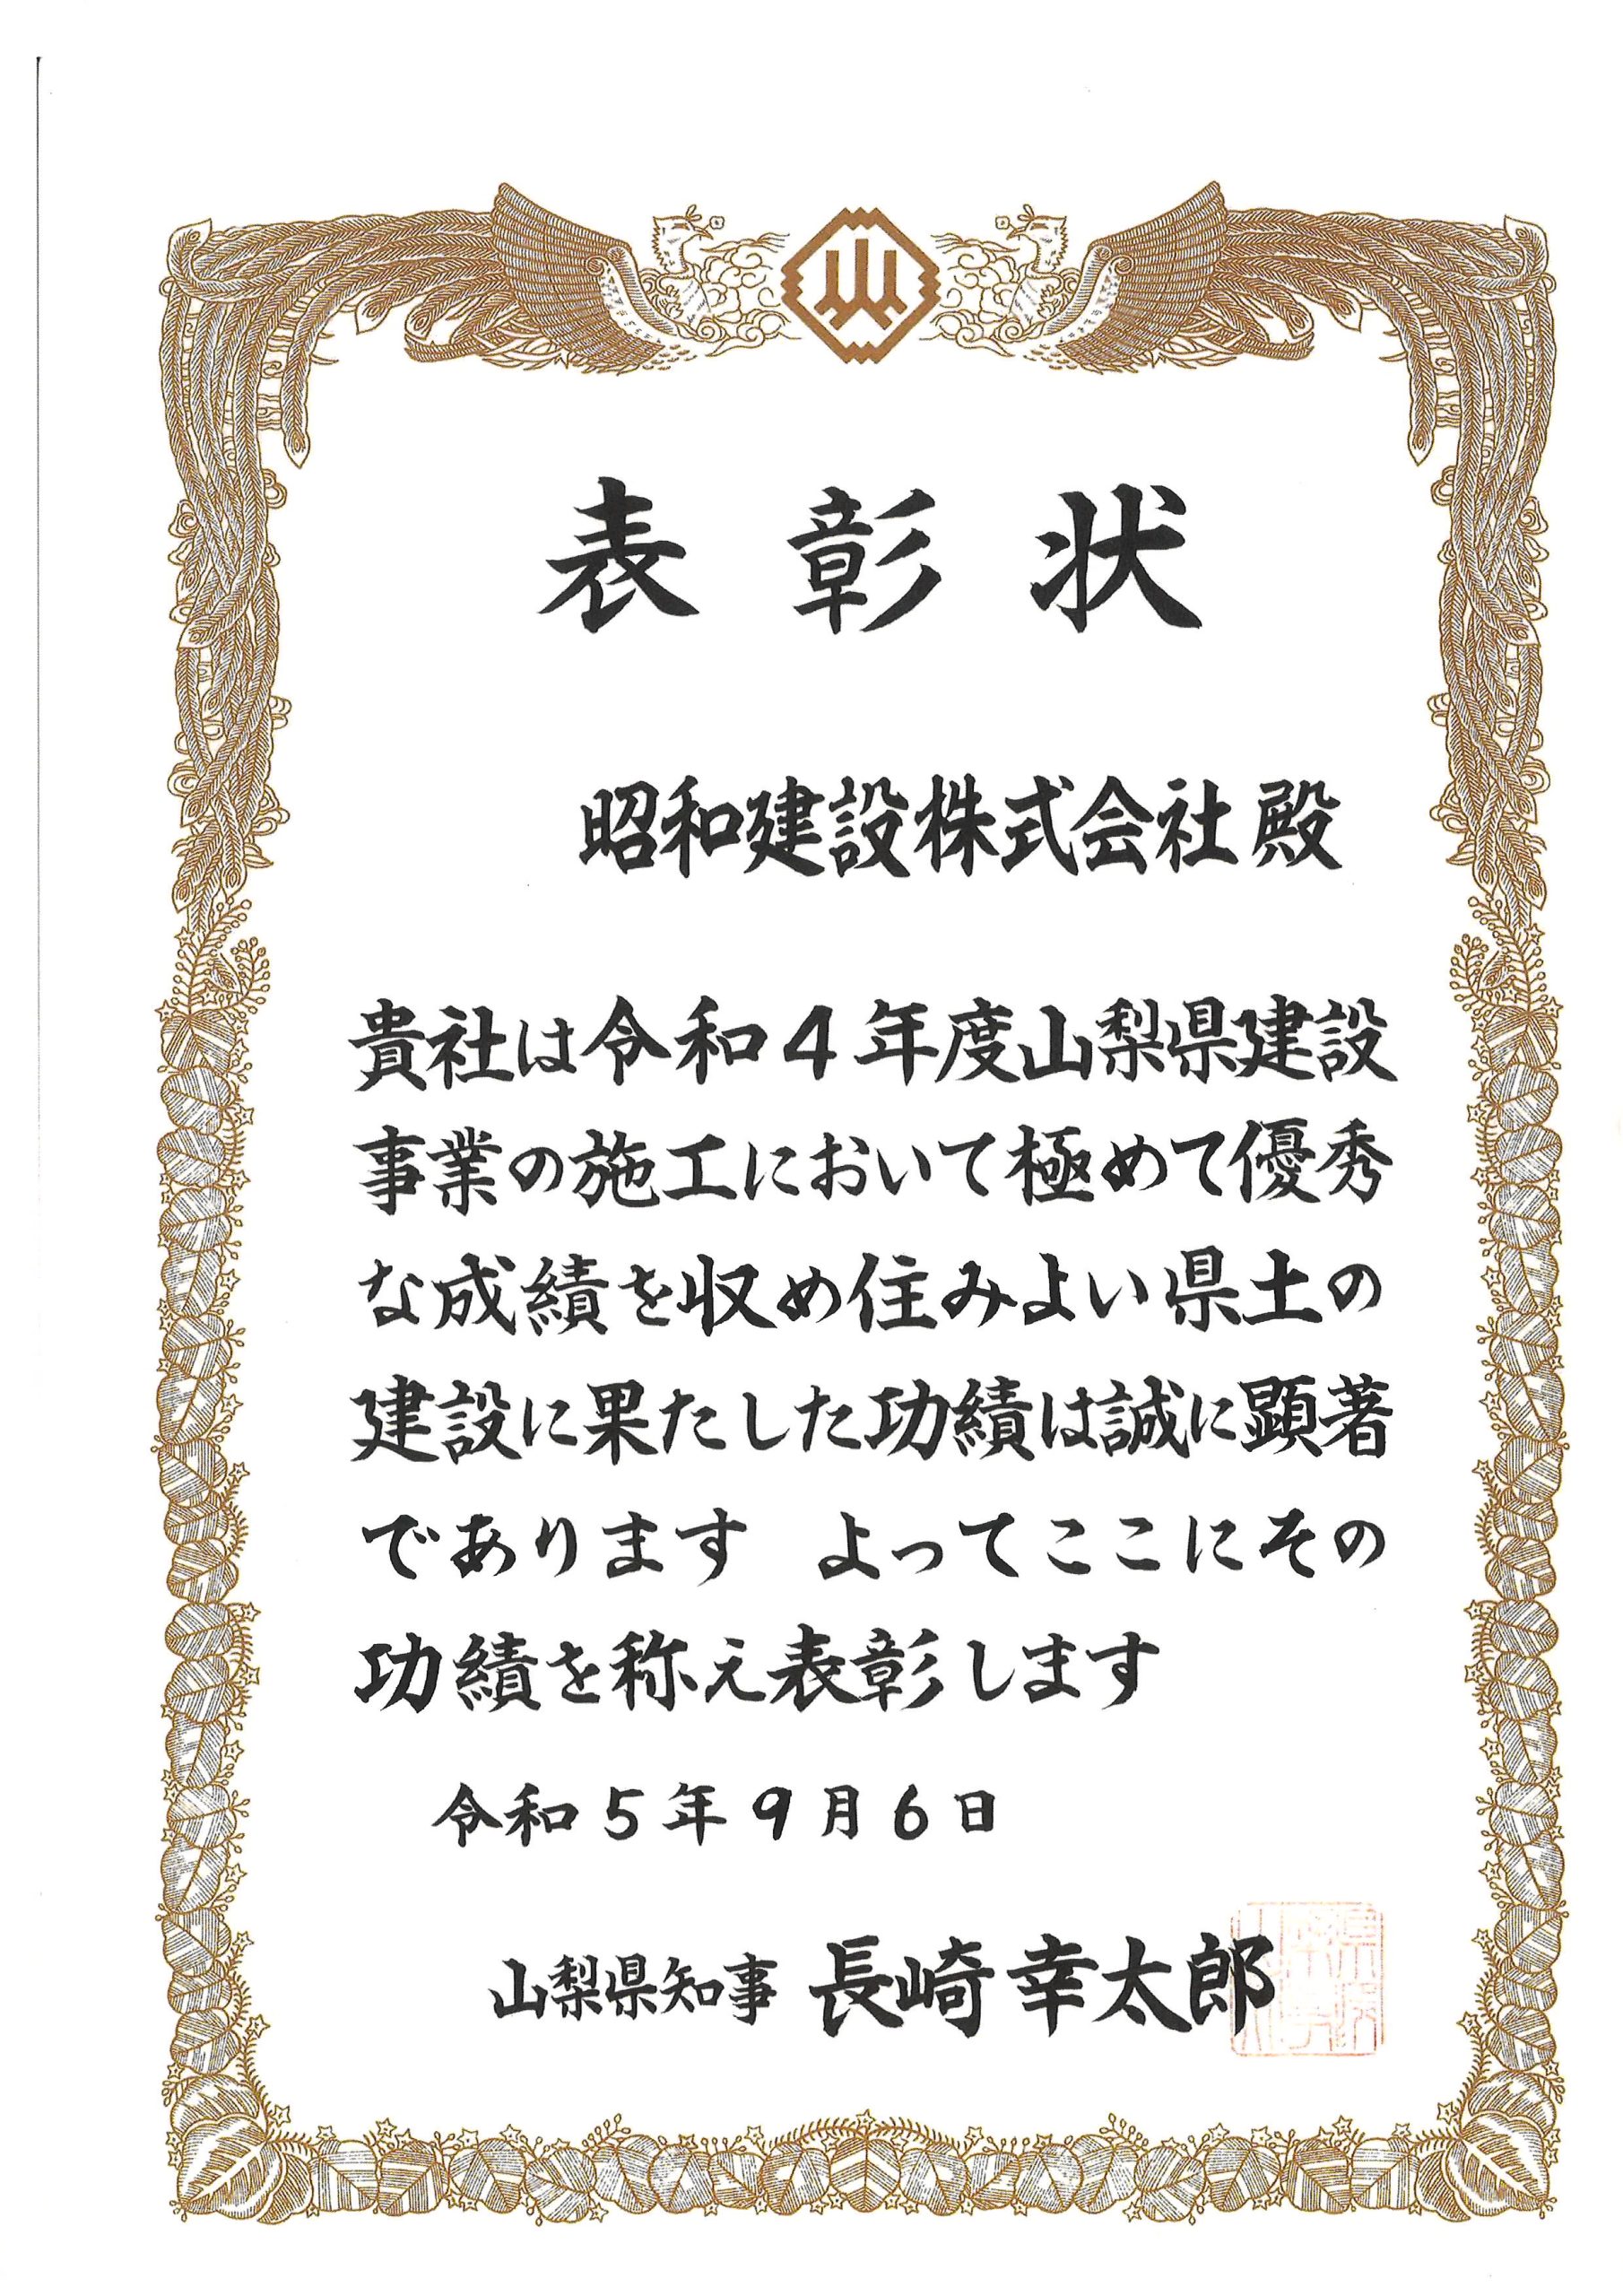 表彰状
昭和建設株式会社 殿
貴社は令和4年度山梨県建設
事業の施工において極めて優秀
な成績を収め住みよい県土の
建設に果たした功績は誠に顕著
であります　よってここにその
功績を称え表彰します
令和5年9月6日
山梨県知事 長崎幸太郎